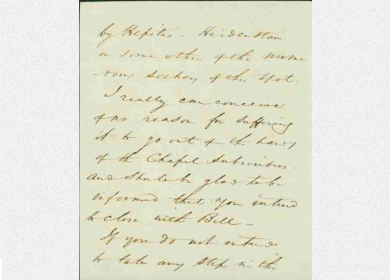 by Hepites - Heidenstam
or some other of the nume
-rous seekers of the spot.
I really can conceive
of no reason for suffering
it to go out of the hands
of the Chapel Subscribers.
and should be glad to be
informed that you intend
to close with Bell -
If you do not intend
to take any step in the